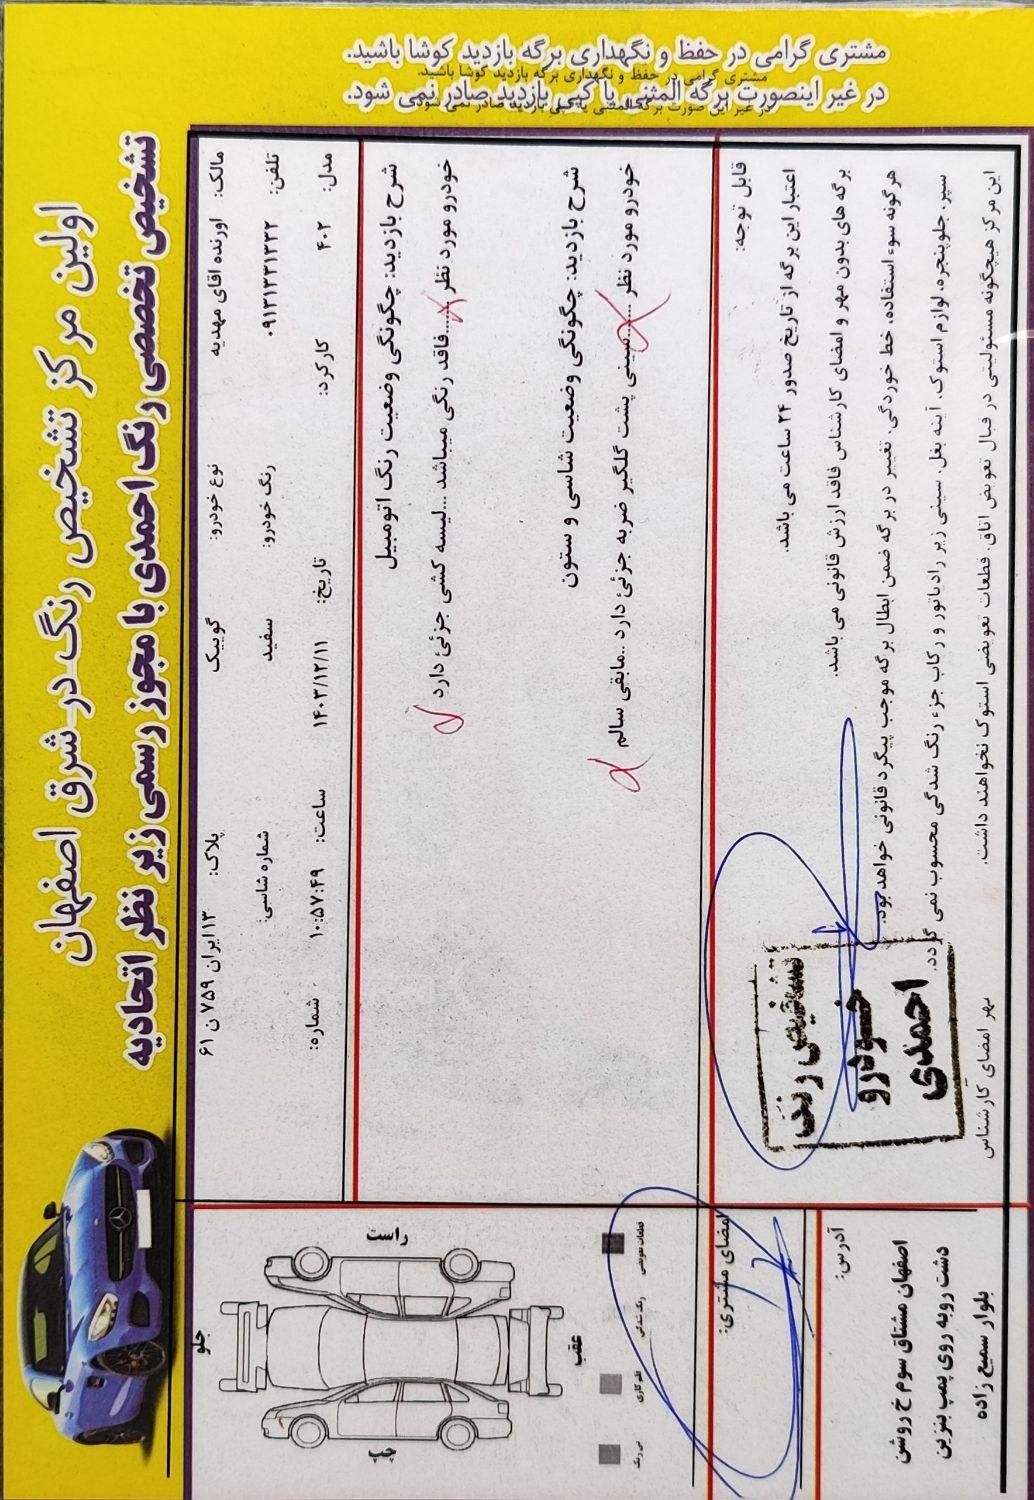 مشتری گرامی در حفظ و نگهداری برگه بازدید کوشا باشید.
در غیر اینصورت برگه المثنی یا کپی بازدید صادر نمی شود.
مشتری گرامی در حفظ و نگهداری برگه بازدید کوشا باشید.
در غیر این صورت برگه المثنی یا کپی بازدید صادر نمی شود.
اولین مرکز تشخیص رنگ در شرق اصفهان
تشخیص تخصصی رنگ احمدی با مجوز رسمی زیر نظر اتحادیه
مالک: اورنده اقای مهدیه نوع خودرو: کوییک پلاک: ۱۳ ایران ۷۵۹ ن ۶۱
تلفن: ۰۹۱۳۱۳۳۱۳۳۲ رنگ خودرو: سفید شماره شاسی:
مدل: ۴۰۲ کارکرد: تاریخ: ۱۴۰۳/۱۲/۱۱ ساعت: ۱۰:۵۷:۴۹ شماره:
شرح بازدید: چگونگی وضعیت رنگ اتومبیل
خودرو مورد نظر ........فاقد رنگی میباشد ...لیسه کشی جزئی دارد
شرح بازدید: چگونگی وضعیت شاسی و ستون
خودرو مورد نظر ........سینی پشت گلگیر ضربه جزئی دارد ..مابقی سالم
قابل توجه:
اعتبار این برگه از تاریخ صدور ۲۴ ساعت می باشد.
برگه های بدون مهر و امضای کارشناس فاقد ارزش قانونی می باشد.
هرگونه سوء استفاده، خط خوردگی، تغییر در برگه ضمن ابطال برگه موجب پیگرد قانونی خواهد بود.
سپر، جلوپنجره، لوازم استوک، آینه بغل، سینی زیر رادیاتور و رکاب جزء رنگ شدگی محسوب نمی گردد.
این مرکز هیچگونه مسئولیتی در قبال تعویض اتاق، قطعات تعویضی استوک نخواهند داشت.
مهر امضای کارشناس
تشخیص رنگ
خودرو
احمدی
راست
جلو
عقب
چپ
قطعات تعویضی
رنگ شدگی
بی رنگ
امضای مشتری:
آدرس:
اصفهان مشتاق سوم خ روشن
دشت روبه روی پمپ بنزین
بلوار سمیع زاده